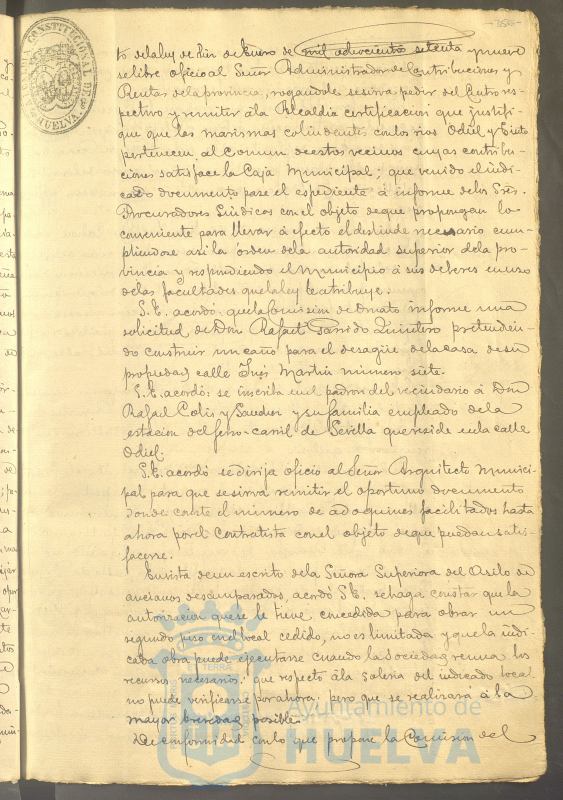 ALCALDIA CONSTITUCIONAL DE HUELVA
to de la ley de diez de Enero de mil ochocientos setenta y nueve
se libre oficio al Señor Administrador de Contribuciones y
Rentas de la provincia, rogandole se sirva pedir del Centro res-
pectivo y remitir á la Alcaldia certificacion que justifi-
que que las marismas colindantes con los rios Odiel y Tinto
pertenecen al Comun de estos vecinos cuyas contribu-
ciones satisface la Caja Municipal; que venido el indi-
cado documento pase el espediente á informe de los Sres.
Procuradores Sindicos con el objeto de que propongan lo
conveniente para llevar á efecto el deslinde necesario cum-
pliendose asi la orden de la autoridad superior de la pro-
vincia y respondiendo el Municipio á sus deberes en uso
de las facultades que la ley le atribuye.
S.E. acordó: que la Comision de Ornato informe una
solicitud de Don Rafael Garrido Quintero pretendien-
do construir un caño para el desagüe de la casa de su
propiedad calle Inés Martin número siete.
S.E. acordó: se inscriba en el padron del vecindario á Don
Rafael Cotis y Sanchez y su familia empleado de la
estacion del ferro-carril de Sevilla que reside en la calle
Odiel.
S.E. acordó se dirija oficio al Señor Arquitecto Munici-
pal para que se sirva remitir el oportuno documento
donde conste el número de adoquines facilitados hasta
ahora por el Contratista con el objeto de que puedan satis-
facerse.
En vista de un escrito de la Señora Superiora del Asilo de
ancianos desamparados, acordó S.E. se haga constar que la
autorizacion que se le tiene concedida para obrar un
segundo piso en el local cedido, no es limitada y que la indi-
cada obra puede ejecutarse cuando la Sociedad reuna los
recursos necesarios; que respecto á la galeria del indicado local
no puede verificarse por ahora; pero que se realizará á la
mayor brevedad posible.
De conformidad con lo que propone la Comision del
Ayuntamiento de
HUELVA